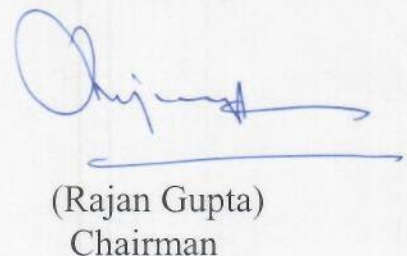 (Rajan Gupta)
Chairman